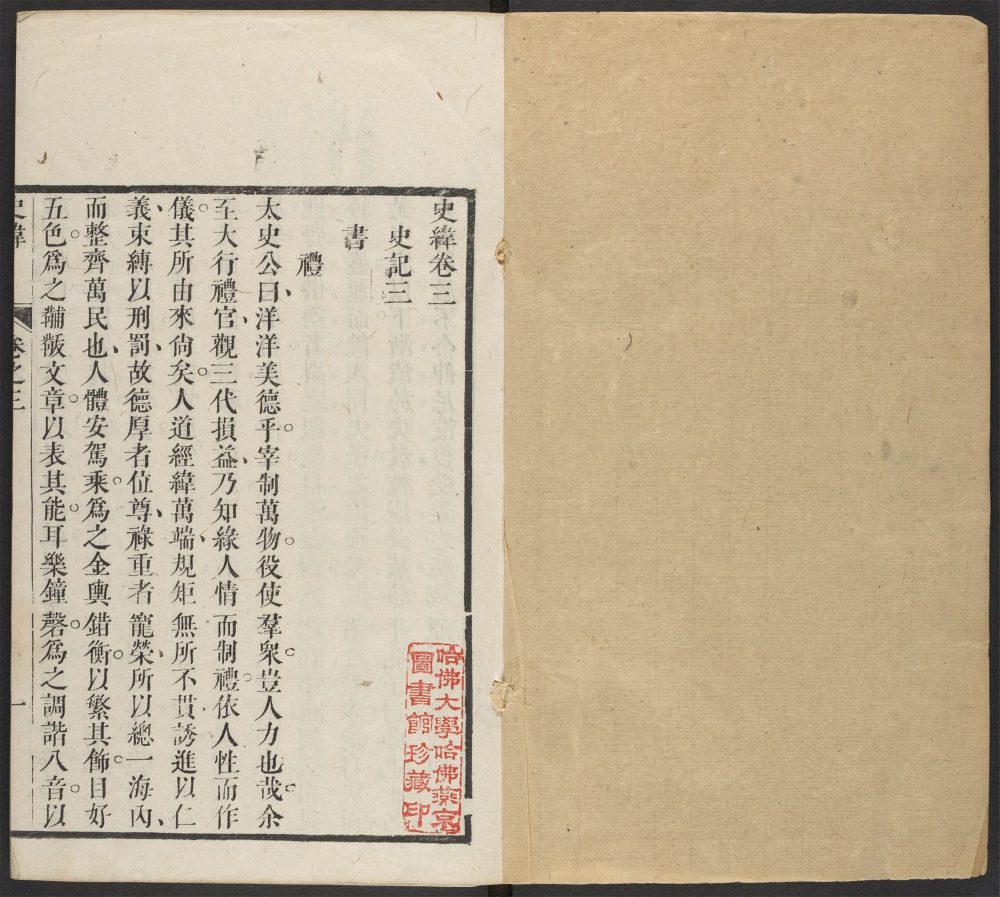 史緯卷三
史記三
書
禮
太史公曰洋洋美德乎宰制萬物役使羣衆豈人力也哉余
至大行禮官觀三代損益乃知緣人情而制禮依人性而作
儀其所由來尙矣人道經緯萬端規矩無所不貫誘進以仁
義束縛以刑罰故德厚者位尊祿重者寵榮所以總一海內
而整齊萬民也人體安駕乘爲之金輿錯衡以繁其飾目好
五色爲之黼黻文章以表其能耳樂鐘磬爲之調諧八音以
史緯
卷之三
一
哈佛大學哈佛燕京
圖書館珍藏印